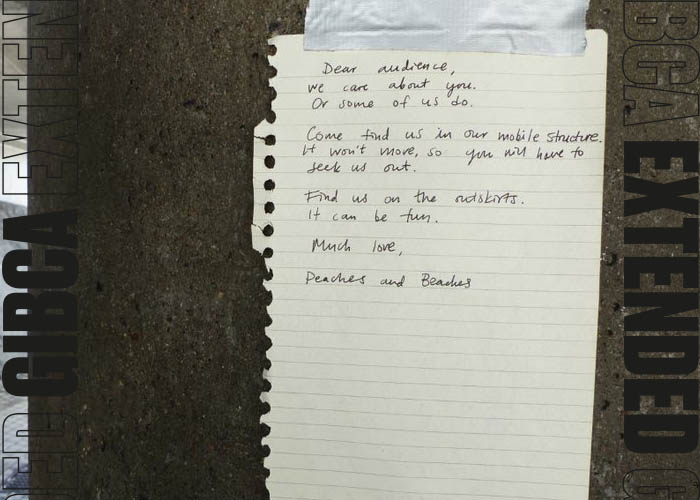 Dear audience,
we care about you.
Or some of us do.
Come find us in our mobile structure.
It won't move, so you will have to
seek us out.
Find us on the outskirts.
It can be fun.
Much love,
Peaches and Beaches
GIBCA EXTEN
DED
BCA EXTENDED G